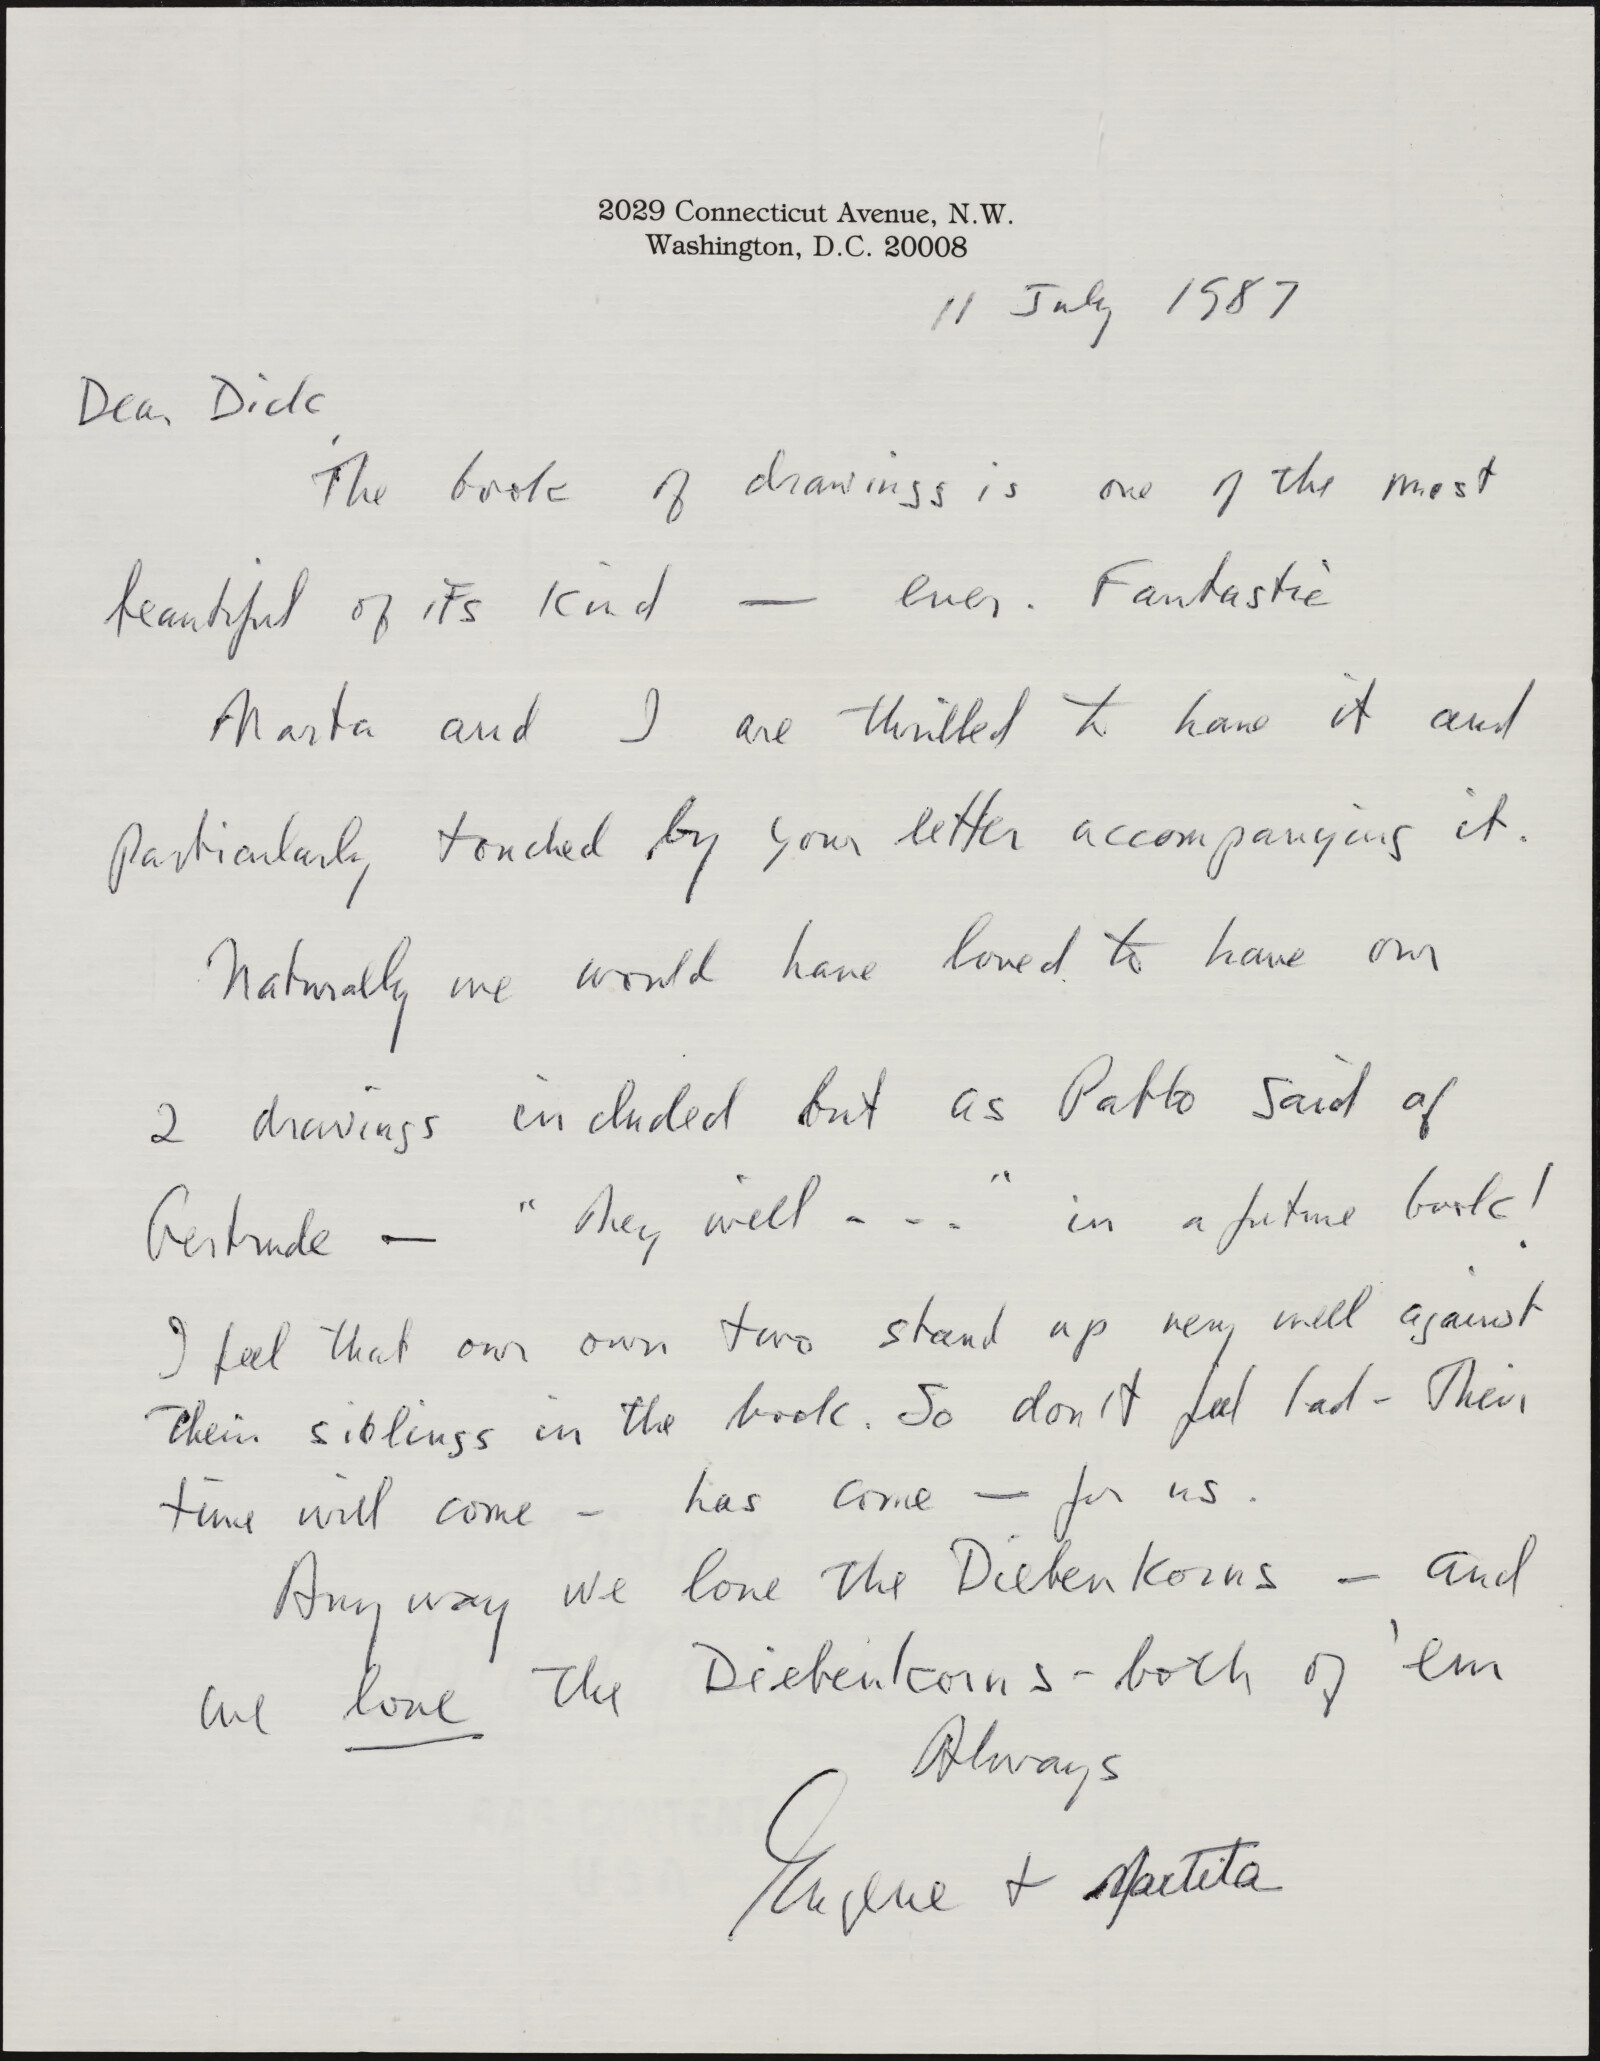 2029 Connecticut Avenue, N.W.
Washington, D.C. 20008
11 July 1987
Dear Dick,
The book of drawings is one of the most
beautiful of its kind — ever. Fantastic
Marta and I are thrilled to have it and
particularly touched by your letter accompanying it.
Naturally we would have loved to have our
2 drawings included but as Pablo said of
Gertrude — "They will - - -" in a future book!
I feel that our own two stand up very well against
their siblings in the book. So don't feel bad - Their
time will come - has come — for us.
Anyway we love the Diebenkorns — and
we love the Diebenkorns - both of 'em
Always
Eugene + Martita